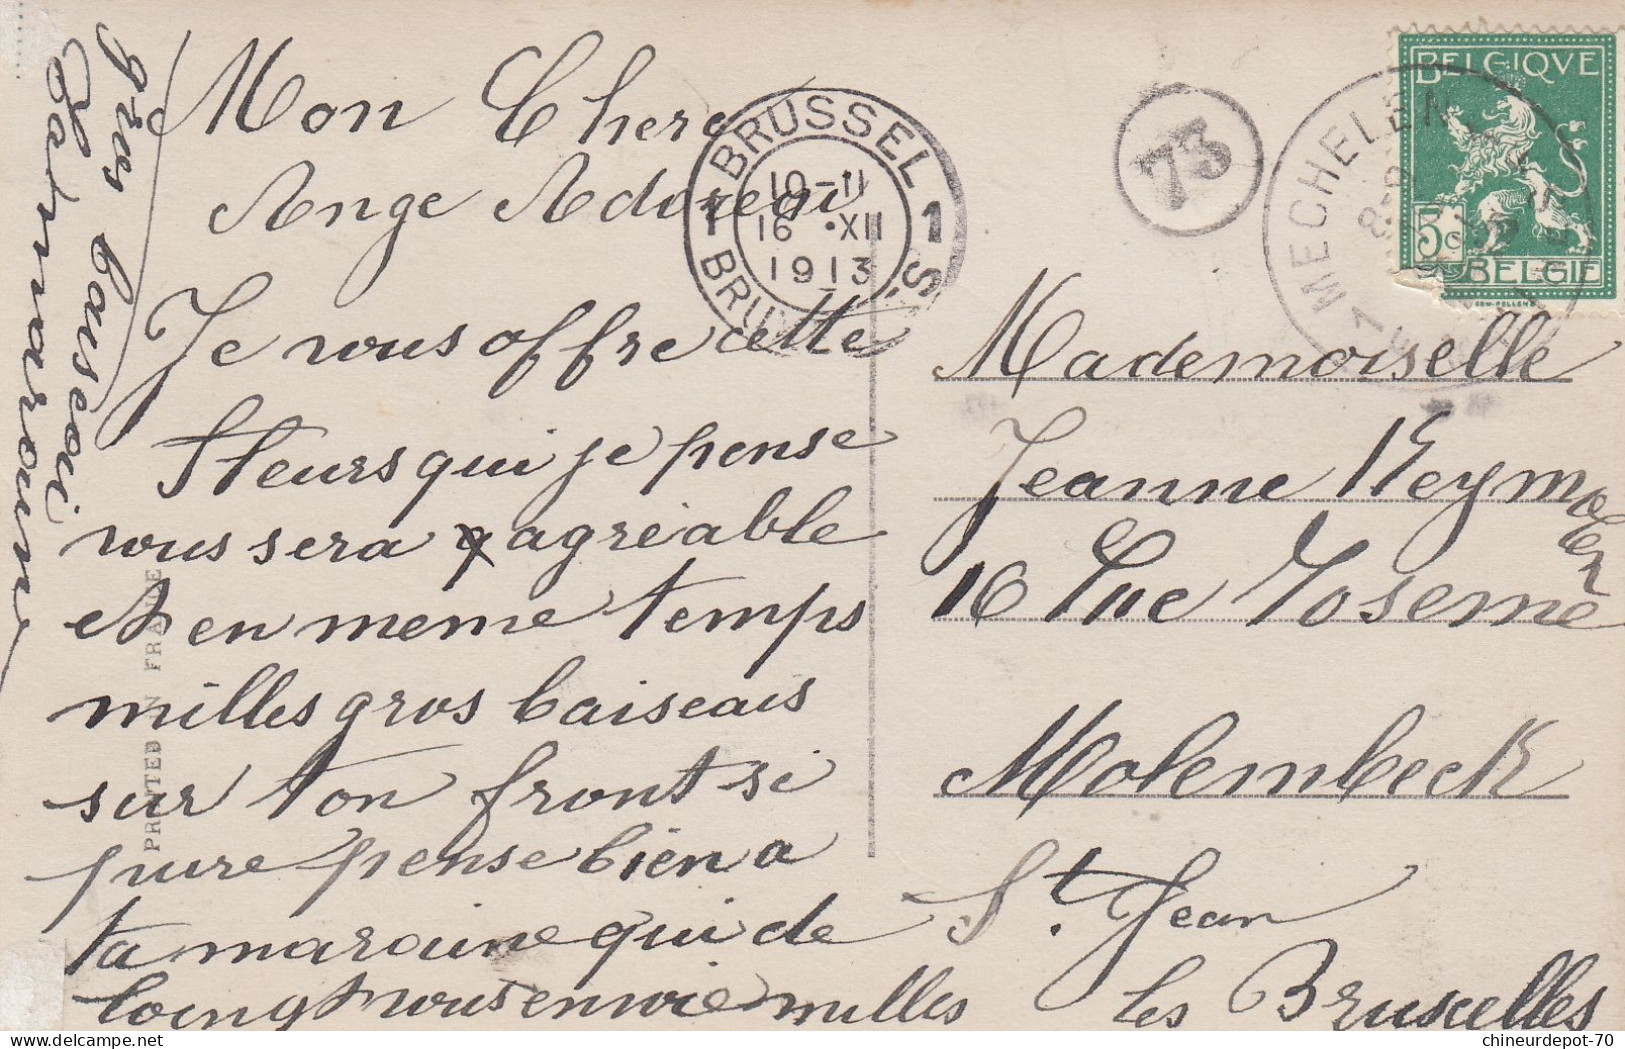 Mon Chere
Ange Adoreai
Je vous offre cette
fleurs qui je pense
vous sera agréable
et en meme temps
milles gros baiseais
sur ton front si
pure pense bien a
ta maraine qui de
loingt vous envoie milles
gros baiseai
Ta maraine
Mademoiselle
Jeanne Reymolen
16 Rue
Molembeek
St. Jean
les Bruxelles
BRUSSEL
1 10-11 1
16 •XII
1913
BRUX
S.
73
MECHELEN
1
BELGIQVE
5c
BELGIE
PRINTED IN FRANCE
chineurdepot-70